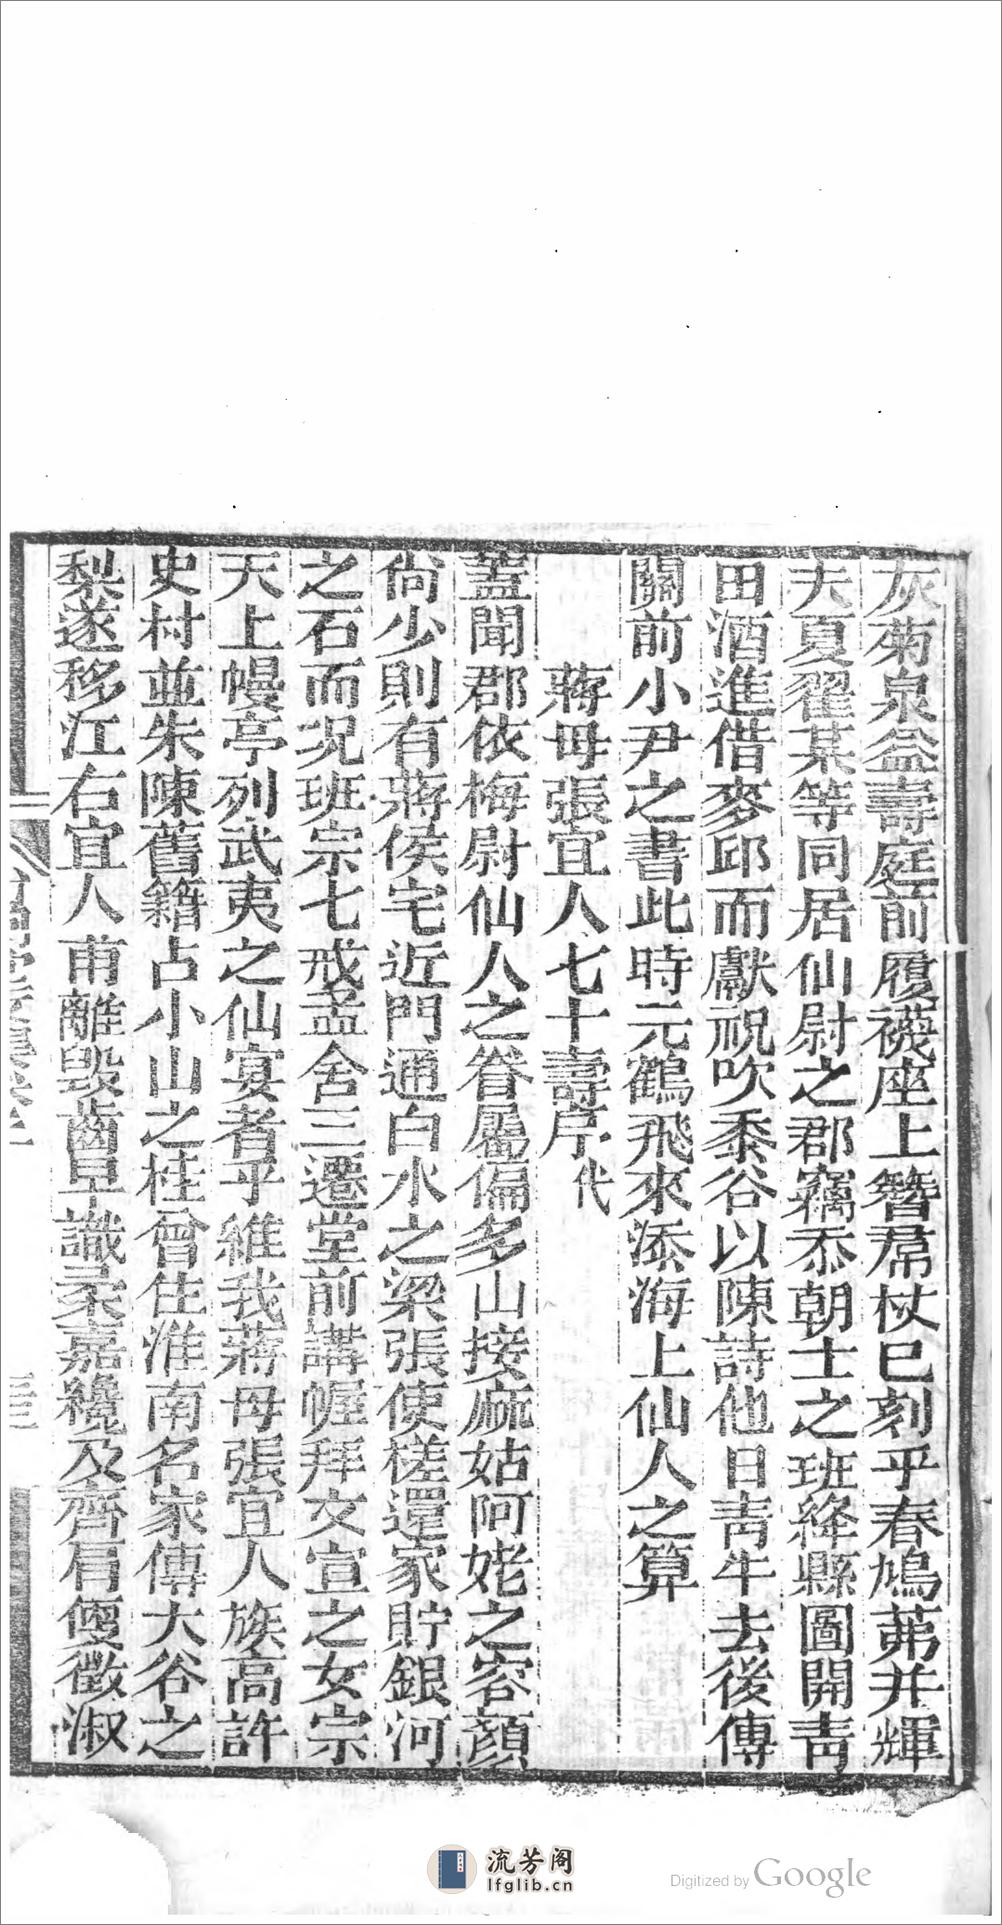 灰菊泉益壽庭前履襪座上簪帬杖已刻乎春鳩茀并輝
夫夏翟某等同居仙尉之郡竊忝朝士之班絳縣圖開靑
田酒進借麥邱而獻祝吹黍谷以陳詩他日靑牛去後傳
關前小尹之書此時元鶴飛來添海上仙人之算
蔣母張宜人七十壽序代
蓋聞郡依梅尉仙人之眷屬偏多山接麻姑阿姥之容顏
尙少則有蔣侯宅近門通白水之梁張使槎還家貯銀河
之石而況班宗七戒孟舍三遷堂前講幄拜文宣之女宗
天上幔亭列武夷之仙宴者乎維我蔣母張宜人族高許
史村並朱陳舊籍占小山之桂曾住淮南名家傳大谷之
梨遂移江右宜人甫離毀齒早識柔嘉纔及齊肩便徵淑
流芳阁
lfglib.cn
Digitized by Google